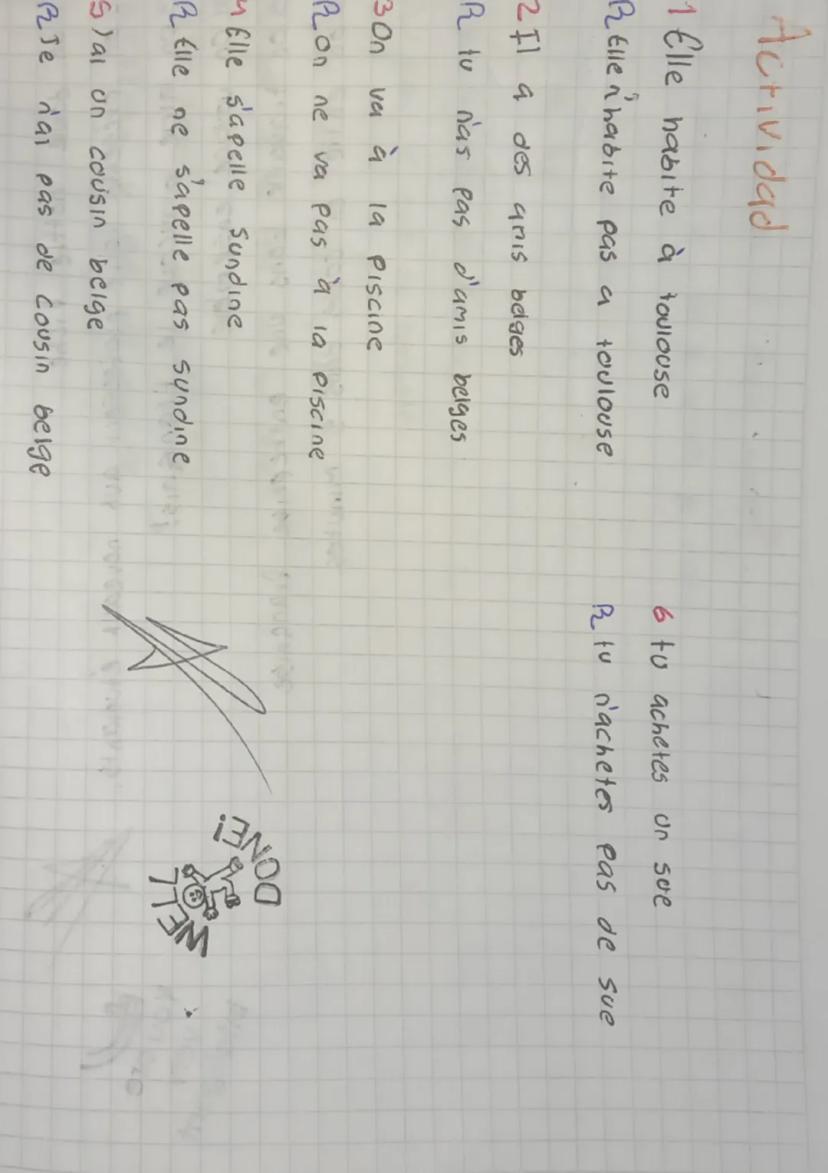 Actividad
1 Elle habite à toulouse
R Elle n'habite pas a toulouse
2 Il a des amis belges
R tu n'as pas d'amis belges
3 On va à la piscine
R On ne va pas à la piscine
4 Elle s'apelle sundine
R Elle ne s'apelle pas sundine
5 J'ai un cousin belge
R Je n'ai pas de cousin belge
6 tu achetes un sue
R tu n'achetes pas de sue
WELL
DONE!